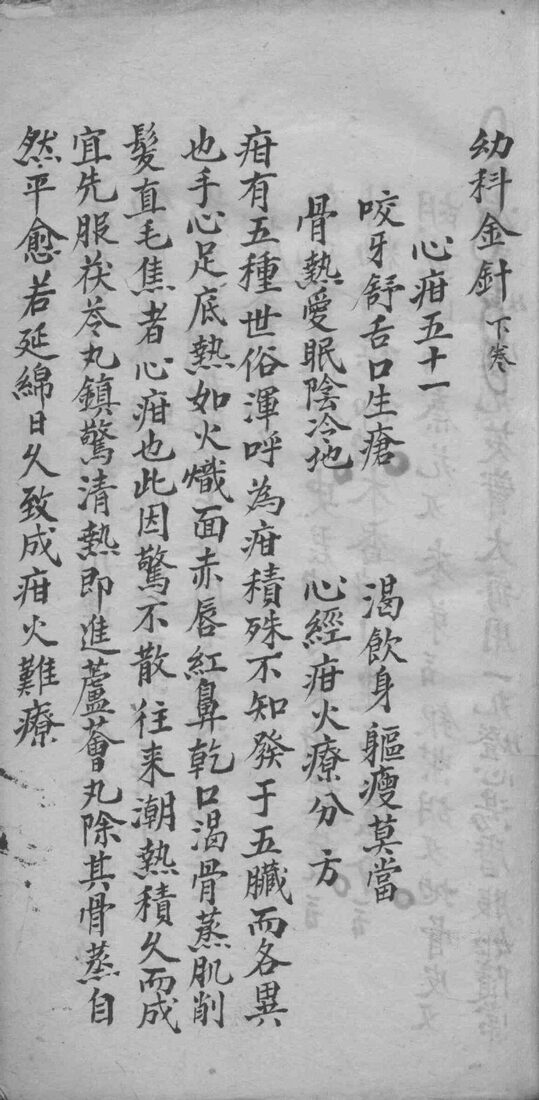 幼科金針下卷
心疳五十一
咬牙舒舌口生瘡 渴飲身軀瘦莫當
骨熱愛眠陰冷地 心經疳火療分方
疳有五種世俗渾呼為疳積殊不知發于五臟而各異
也手心足底熱如火熾面赤唇紅鼻乾口渴骨蒸肌削
髮直毛焦者心疳也此因驚不散往来潮熱積久而成
宜先服茯苓丸鎮驚清熱即進蘆薈丸除其骨蒸自
然平愈若延綿日久致成疳火難療